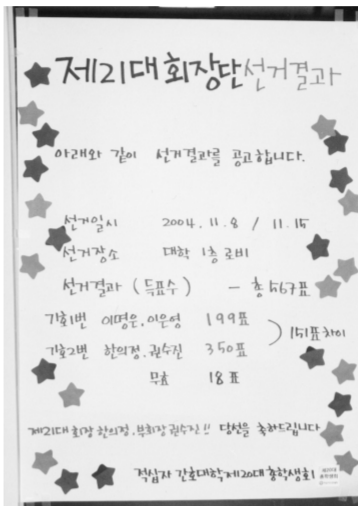 제21대 회장단 선거결과
아래와 같이 선거결과를 공고합니다.
선거일시 2004. 11. 8 / 11. 15
선거장소 대학 1층 로비
선거결과 (득표수) - 총 567표
기호1번 이명은, 이은영 199표
기호2번 한의정, 권수진 350표
151표차이
무효 18표
제21대 회장 한의정, 부회장 권수진!! 당선을 축하드립니다
적십자 간호대학 제20대 총학생회